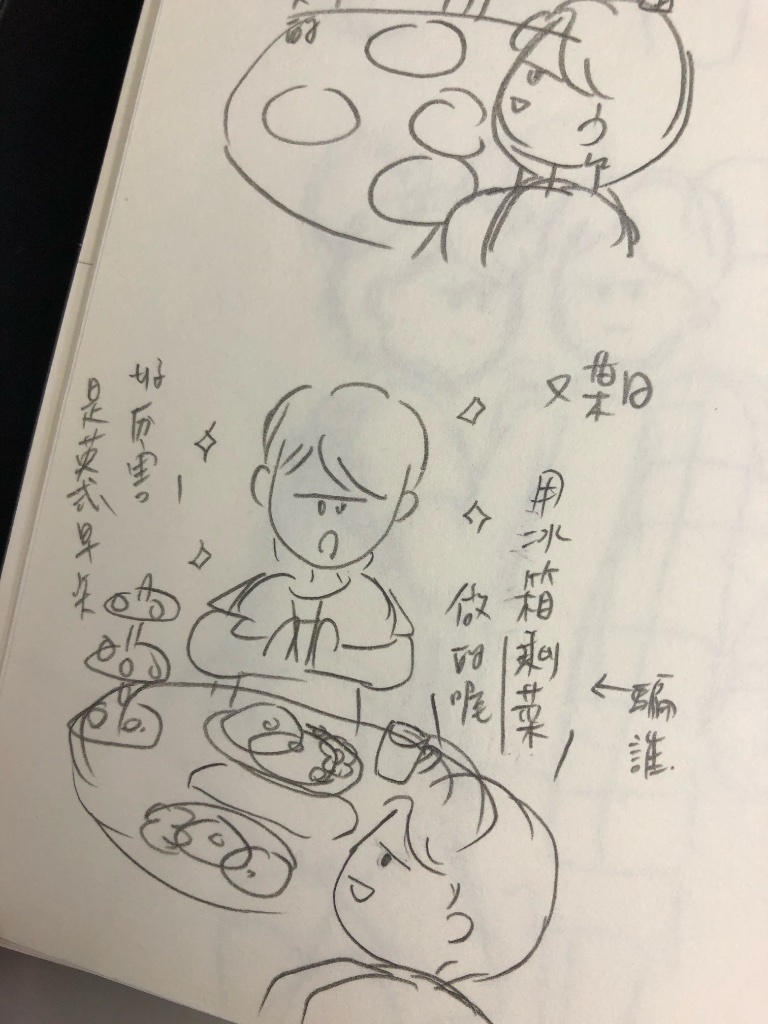 又葉日
用冰箱剩菜
做的喔
騙誰
好厉害
是英式早午